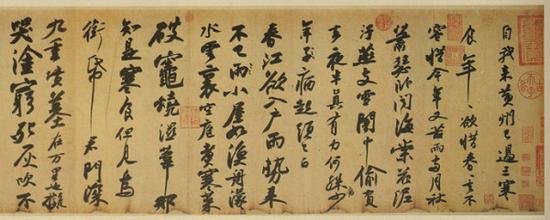 自我来黄州已過三寒
食年〻欲惜春〻去不
容惜今年又苦雨兩月秋
蕭瑟卧聞海棠花泥
汙燕支雪闇中偷負
去夜半真有力何殊少
年子病起頭已白
春江欲入戶雨勢來
不已雨小屋如漁舟濛〻
水雲裏空庖煮寒菜
破竈燒濕葦那
知是寒食但見烏
銜帋君門深
九重墳墓在万里也擬
哭塗窮死灰吹不